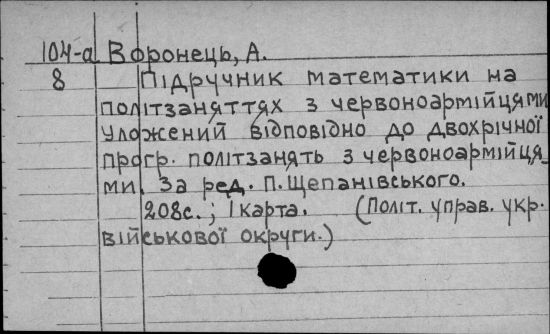 104-а Воронець, А.
8 Підручник математики на
політзаняттях з червоноармійцями
уложений відповідно до двохрічної
прогр. політзанять з червоноармійця_
ми. За ред. П. Щепанівського.
208с.; 1 карта. (Політ. управ. укр.
військової округи.)